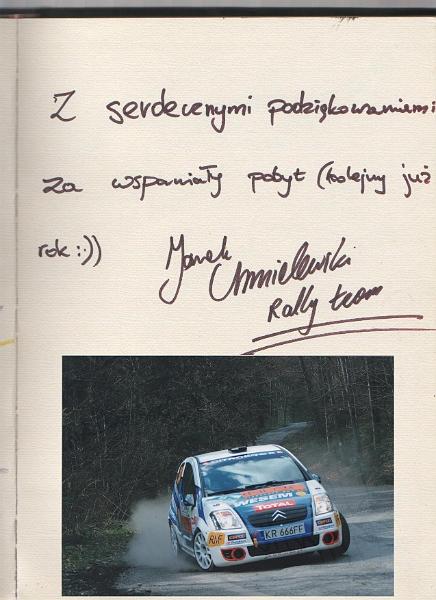 Z serdecznymi podziękowaniami
za wspaniały pobyt (kolejny już
rok :))
Janek Chmielewski
Rally team
WESEM
TOTAL
RMF
KR 666FF